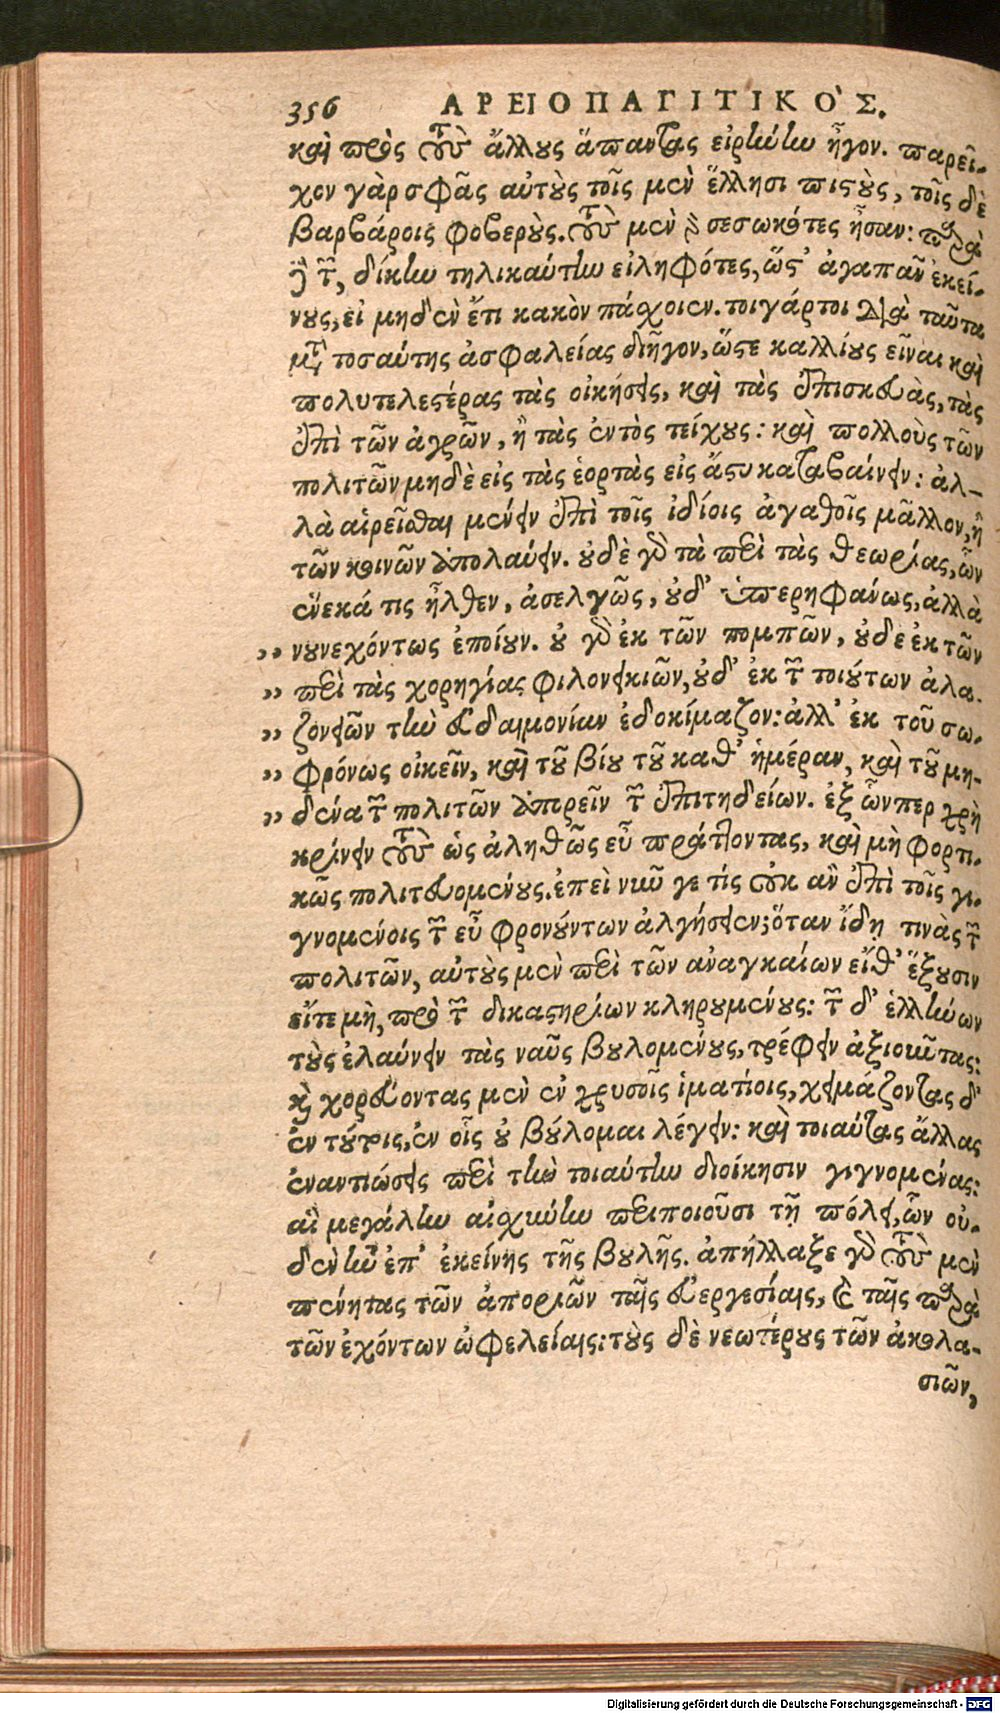 356 ΑΡΕΙΟΠΑΓΙΤΙΚΟ`Σ.
καὶ πρὸς τοὺς ἄλλους ἅπαντας εἰρήνην ἦγον. παρεῖ-
χον γὰρ σφᾶς αὐτοὺς τοῖς μὲν ἕλλησι πιστοὺς, τοῖς δὲ
βαρβάροις φοβερούς. τοὺς μὲν γὸ σεσωκότες ἦσαν: παρὰ
δὲ τῶν, δίκην τηλικαύτην εἰληφότες, ὥστ' ἀγαπᾶν ἐκεί-
νους, εἰ μηδὲν ἔτι κακὸν πάχοιεν. τοιγάρτοι διὰ ταῦτα
μετὰ τοσαύτης ἀσφαλείας διῆγον, ὥστε καλλίους εἶναι καὶ
πολυτελεστέρας τὰς οἰκήσεις, καὶ τὰς ἐπισκευὰς, τὰς
ἐπὶ τῶν ἀγρῶν, ἢ τὰς ἐντὸς τείχους: καὶ πολλοὺς τῶν
πολιτῶν μηδὲ εἰς τὰς ἑορτὰς εἰς ἄστυ καταβαίνειν: ἀλ-
λὰ αἱρεῖσθαι μένειν ἐπὶ τοῖς ἰδίοις ἀγαθοῖς μᾶλλον, ἢ
τῶν κοινῶν ἀπολαύειν. οὐδὲ γὸ τὰ περὶ τὰς θεωρίας, ὧν
ἕνεκά τις ἦλθεν, ἀσελγῶς, οὐδ' ὑπερηφάνως, ἀλλὰ
,, νουνεχόντως ἐποίουν. οὐ γὸ ἐκ τῶν πομπῶν, οὐδε ἐκ τῶν
,, περὶ τὰς χορηγίας φιλονεικιῶν, οὐδ' ἐκ τῶν τοιούτων ἀλα-
,, ζονειῶν τὴν εὐδαιμονίαν ἐδοκίμαζον: ἀλλ' ἐκ τοῦ σω-
,, φρόνως οἰκεῖν, καὶ τοῦ βίου τοῦ καθ' ἡμέραν, καὶ τοῦ μη-
,, δένα τῶν πολιτῶν ἀπορεῖν τῶν ἐπιτηδείων. ἐξ ὧνπερ χρὴ
κρίνειν τοὺς ὡς ἀληθῶς εὖ πράττοντας, καὶ μὴ φορτι-
κῶς πολιτευομένους. ἐπεὶ νῦν γε τίς οὐκ ἂν ἐπὶ τοῖς γι-
γνομένοις τῶν εὖ φρονούντων ἀλγήσειεν; ὅταν ἴδῃ τινὰς τῶν
πολιτῶν, αὐτοὺς μὲν περὶ τῶν ἀναγκαίων εἴθ' ἕξουσιν
εἴτε μὴ, πρὸ τῶν δικαστηρίων κληρουμένους: τῶν δ' ἑλλήνων
τοὺς ἐλαύνειν τὰς ναῦς βουλομένους, τρέφειν ἀξιοῦντας:
καὶ χορεύοντας μὲν ἐν χρυσοῖς ἱματίοις, χειμάζοντας δ'
ἐν τούτοις, ἐν οἷς οὐ βούλομαι λέγειν: καὶ τοιαύτας ἄλλας
ἐναντιώσεις περὶ τὴν τοιαύτην διοίκησιν γιγνομένας:
αἳ μεγάλην αἰσχύνην περιποιοῦσι τῇ πόλει, ὧν οὐ-
δὲν ἦν ἐπ' ἐκείνης τῆς βουλῆς. ἀπήλλαξε γὸ τοὺς μὲν
πένητας τῶν ἀποριῶν ταῖς εὐεργεσίαις, καὶ ταῖς παρὰ
τῶν ἐχόντων ὠφελείαις: τοὺς δὲ νεωτέρους τῶν ἀκολα-
σιῶν,
Digitalisierung gefördert durch die Deutsche Forschungsgemeinschaft - DFG